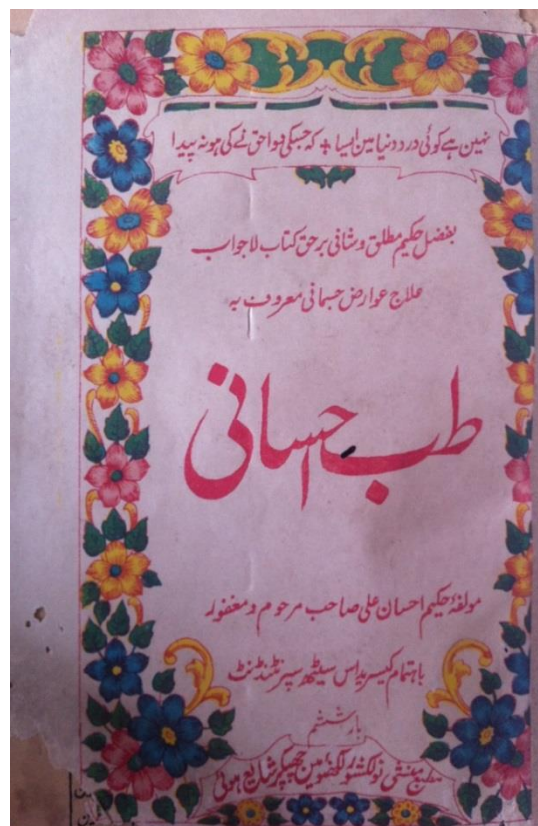 نہین ہے کوئی درد دنیا مین ایسا ٭ کہ جسکی دوا حق نے کی ہو نہ پیدا
بفضل حکیم مطلق و شافی برحق کتاب لاجواب
علاج عوارض جسمانی معروف بہ
طب احسانی
مولفۂ حکیم احسان علی صاحب مرحوم و مغفور
باہتمام کیسریداس سیٹھ سپرنٹنڈنٹ
بار ششم
مطبع منشی نولکشور لکھنؤ مین چھپکر شایع ہوئی